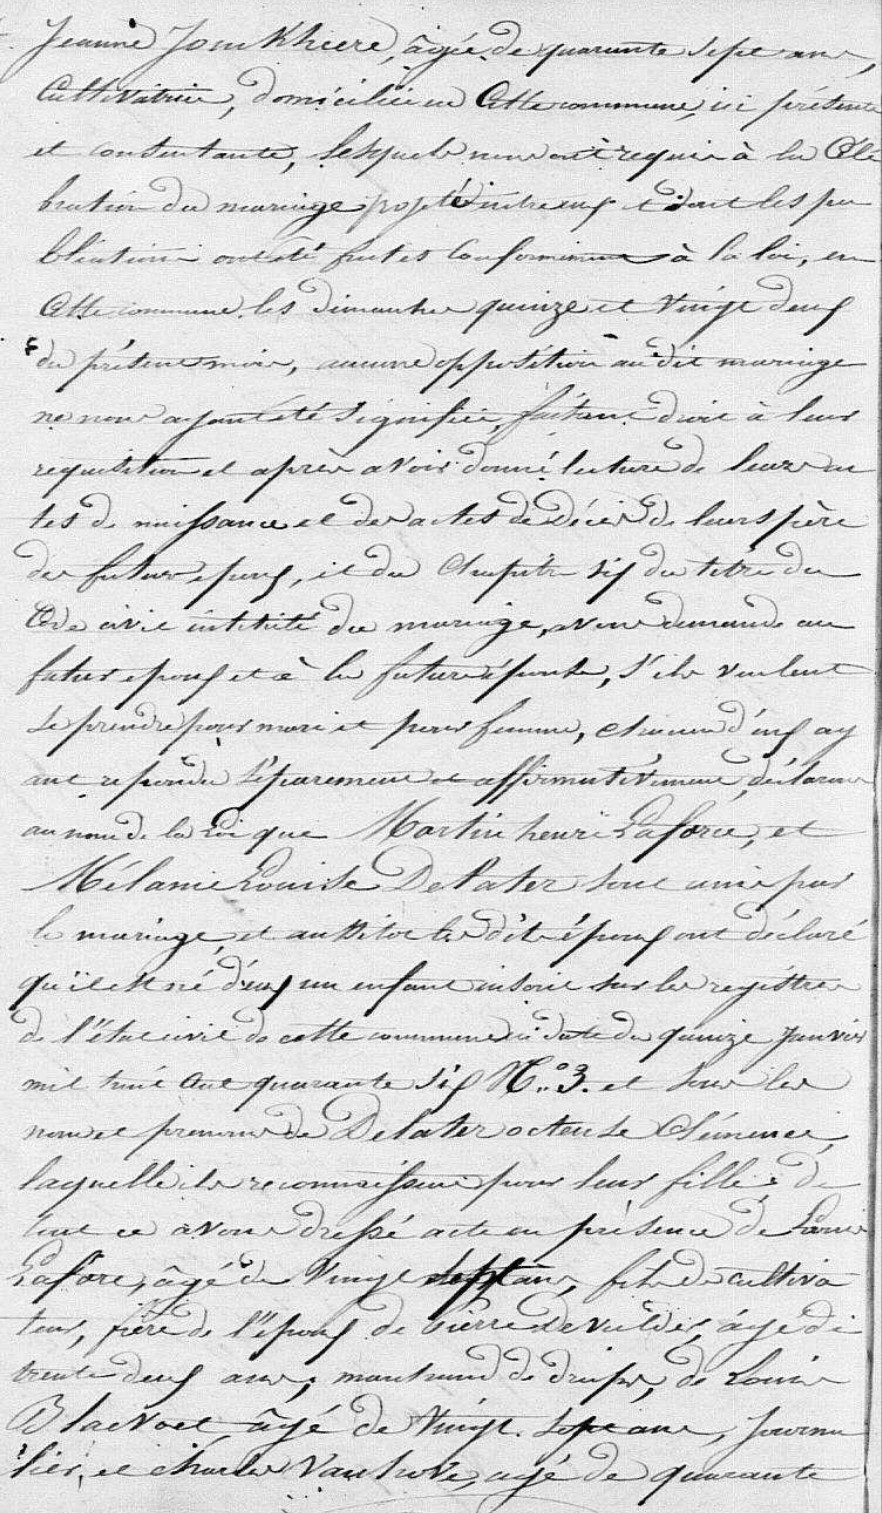 Jeanne Jonckheere, âgée de quarante sept ans,
Cultivatrice, domiciliée en Cette commune, ici présente
et consentante, lesquels nous ont requis à la Célé
bration du mariage projeté entre eux et dont les pu
blications ont été faites Conformément à la loi, en
Cette commune les dimanches quinze et vingt deux
du présent mois, aucune opposition au dit mariage
ne nous ayant été signifiée, faisant droit à leur
requisition et après avoir donné lecture de leurs ac
tes de naissance et des actes de décès de leurs père
des futurs epoux, et du Chapitre six du titre du
Code civil intitulé du mariage, avons demandé au
futur epoux et à la future épouse, s'ils veulent
se prendre pour mari et pour femme, chacun d'eux ay
ant repondu séparement et affirmativement, déclarons
au nom de la Loi que Martin henri Laforce, et
Mélanie Louise Delater sont unis par
le mariage, et aussitot les dits époux ont déclaré
qu'il est né d'eux un enfant inscrit sur les registres
de l'état civil de cette commune en date du quinze Janvier
mil huit cent quarante six N.° 3. et sous les
nom et prenoms de Delater octense Clémence,
laquelle ils reconnaissent pour leur fille: de
tout ce avons dressé acte en présence de Louis
Laforce, âgé de vingt sept ans, fils de cultiva
teur, frère de l'époux de Pierre devulder, âgé de
trente deux ans, marchand de draps, de Louis
Blaevoet âgé de vingt sept ans, journa
lier, et Charles Vanhove, agé de quarante